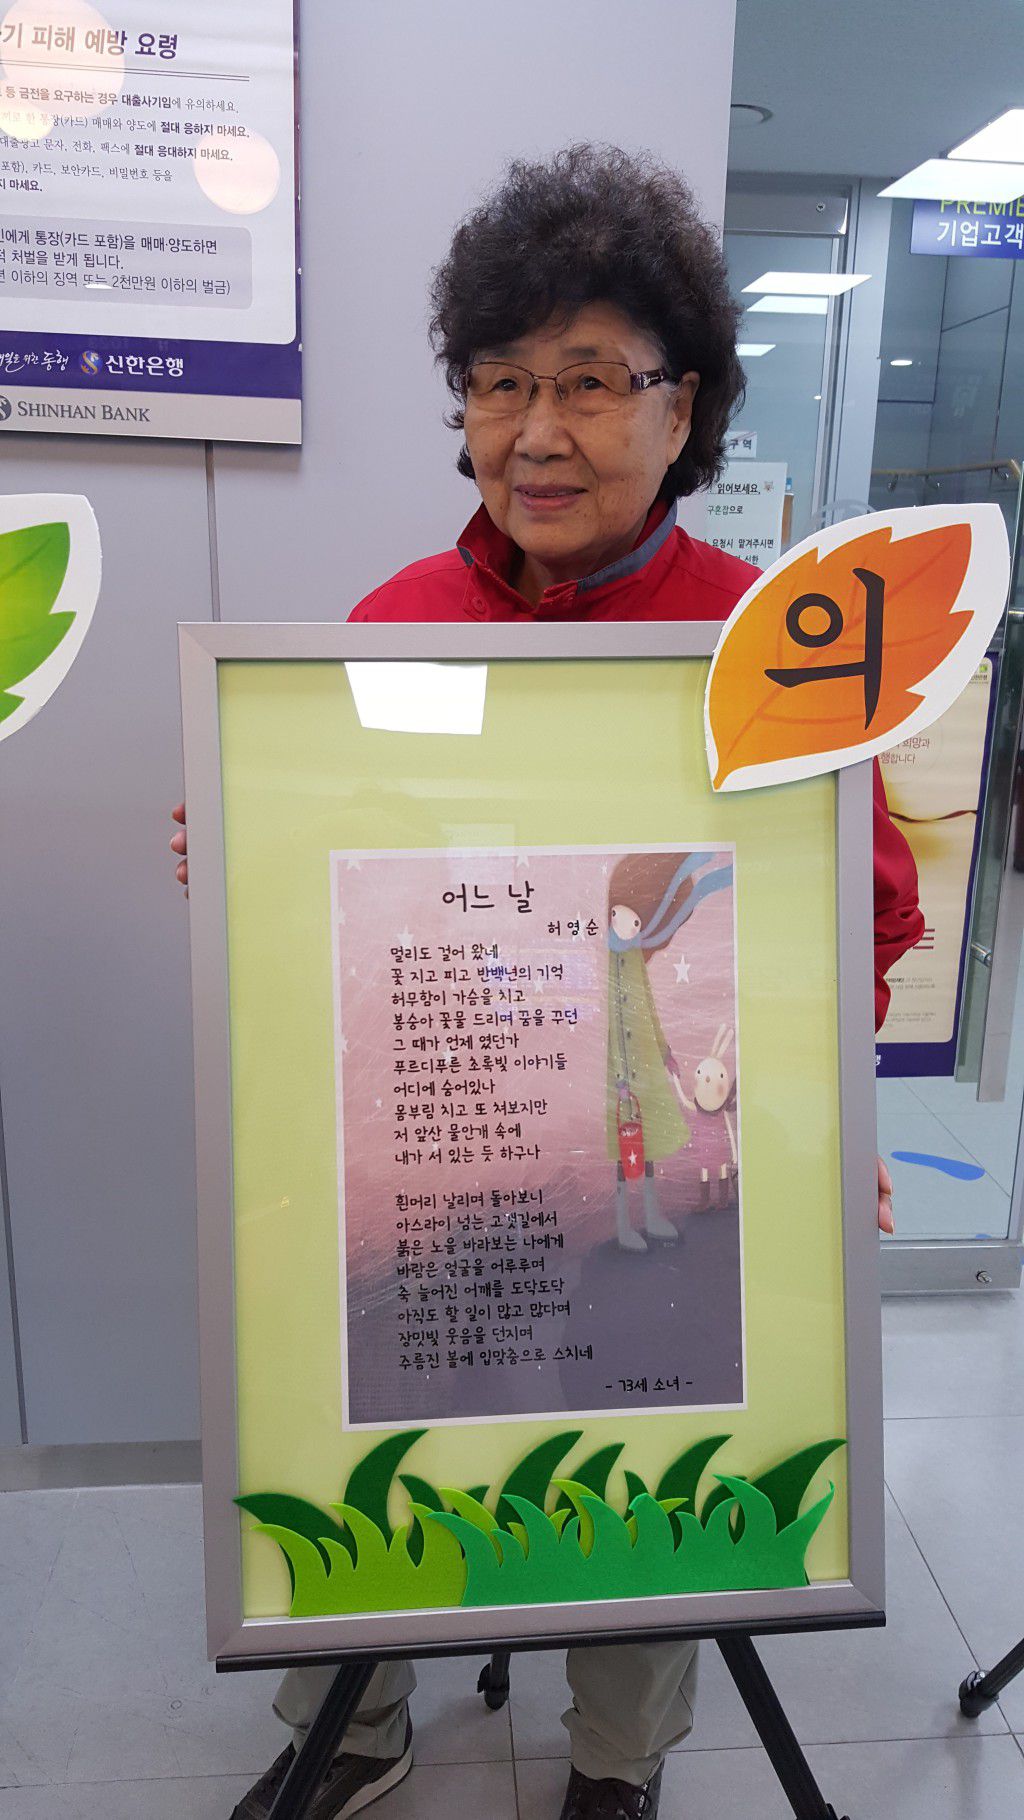 기 피해 예방 요령
등 금전을 요구하는 경우 대출사기임에 유의하세요.
한 통장(카드) 매매와 양도에 절대 응하지 마세요.
대출광고 문자, 전화, 팩스에 절대 응대하지 마세요.
포함), 카드, 보안카드, 비밀번호 등을
지 마세요.
인에게 통장(카드 포함)을 매매·양도하면
적 처벌을 받게 됩니다.
년 이하의 징역 또는 2천만원 이하의 벌금)
위한 동행 신한은행
SHINHAN BANK
PREMIE
기업고객
구역
읽어보세요.
구혼잡으로
요청시 맡겨주시면
신한
의
희망과
행합니다
어느 날
허영순
멀리도 걸어 왔네
꽃 지고 피고 반백년의 기억
허무함이 가슴을 치고
봉숭아 꽃물 드리며 꿈을 꾸던
그 때가 언제 였던가
푸르디푸른 초록빛 이야기들
어디에 숨어있나
몸부림 치고 또 쳐보지만
저 앞산 물안개 속에
내가 서 있는 듯 하구나
흰머리 날리며 돌아보니
아스라이 넘는 고갯길에서
붉은 노을 바라보는 나에게
바람은 얼굴을 어루루며
축 늘어진 어깨를 도닥도닥
아직도 할 일이 많고 많다며
장밋빛 웃음을 던지며
주름진 볼에 입맞춤으로 스치네
- 73세 소녀 -